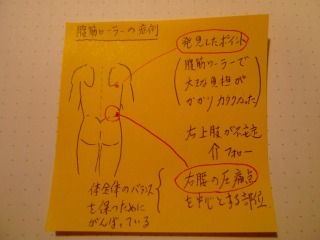 腹筋ローラーの症例
発見したポイント
(腹筋ローラーで
大きな負担が
かかりカクカクした)
右上肢が不安定
⇑フォロー
右腰の圧痛点
を中心とする部位
体全体のバランス
を保つために
がんばっている